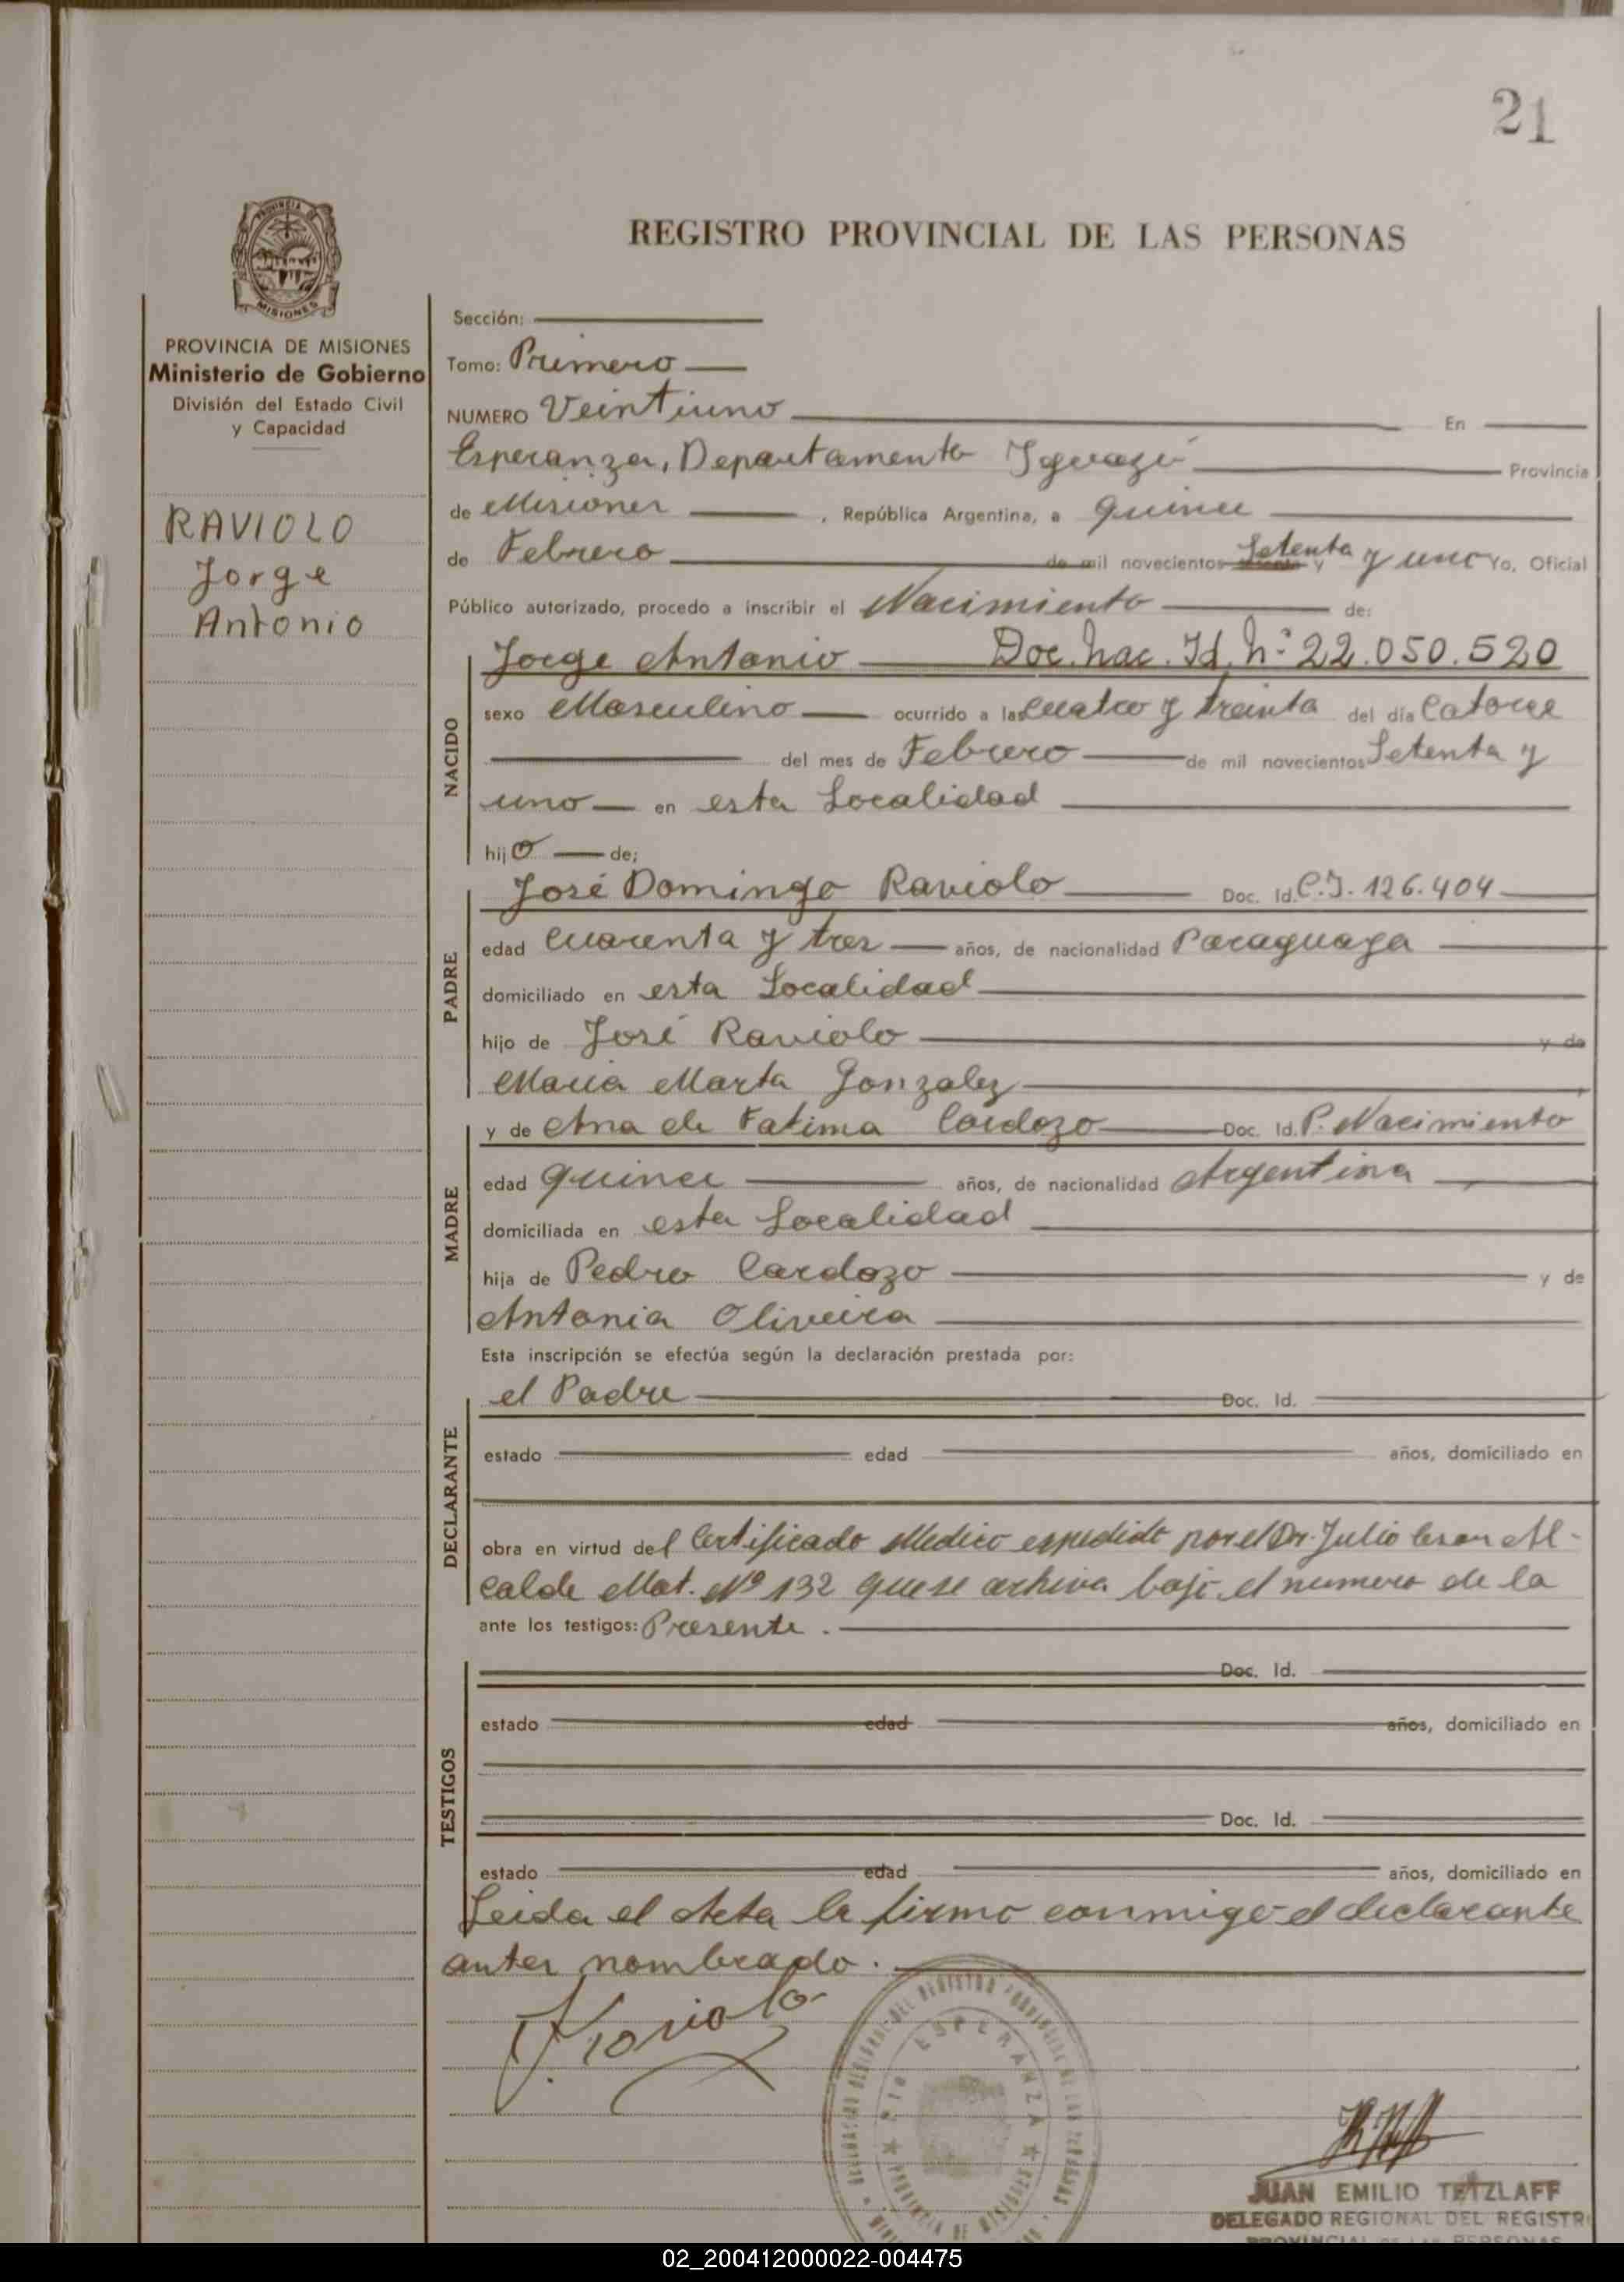 21
PROVINCIA DE
MISIONES
REGISTRO PROVINCIAL DE LAS PERSONAS
PROVINCIA DE MISIONES
Ministerio de Gobierno
División del Estado Civil
y Capacidad
RAVIOLO
Jorge
Antonio
Sección:
Tomo: Primero
NUMERO Veintiuno En
Esperanza, Departamento Iguazú Provincia
de Misiones, República Argentina, a quince
de Febrero de mil novecientos Setenta y uno Yo, Oficial
Público autorizado, procedo a inscribir el Nacimiento de:
NACIDO
Jorge Antonio Doc. Nac. Id. Nº 22.050.520
sexo Masculino ocurrido a las cuatro y treinta del día Catorce
del mes de Febrero de mil novecientos Setenta y
uno en esta Localidad
hijo de;
PADRE
José Domingo Raviolo Doc. Id. C.I. 126.404
edad cuarenta y tres años, de nacionalidad Paraguaya
domiciliado en esta Localidad
hijo de José Raviolo y de
Maria Marta Gonzalez
MADRE
y de Ana de Fatima Cardozo Doc. Id. P. Nacimiento
edad quince años, de nacionalidad Argentina
domiciliada en esta Localidad
hija de Pedro Cardozo y de
Antonia Oliveira
Esta inscripción se efectúa según la declaración prestada por:
DECLARANTE
el Padre Doc. Id.
estado edad años, domiciliado en
obra en virtud del Certificado Medico expedido por el Dr. Julio Cesar Al-
calde Mat. Nº 132 que se archiva bajo el numero de la
ante los testigos: Presente.
TESTIGOS
Doc. Id.
estado edad años, domiciliado en
Doc. Id.
estado edad años, domiciliado en
Leida el Acta la firmo conmigo el declarante
antes nombrado.
ESPERANZA
PROVINCIA DE MISIONES
JUAN EMILIO TETZLAFF
DELEGADO REGIONAL DEL REGISTR
PROVINCIAL DE LAS PERSONAS
02_200412000022-004475